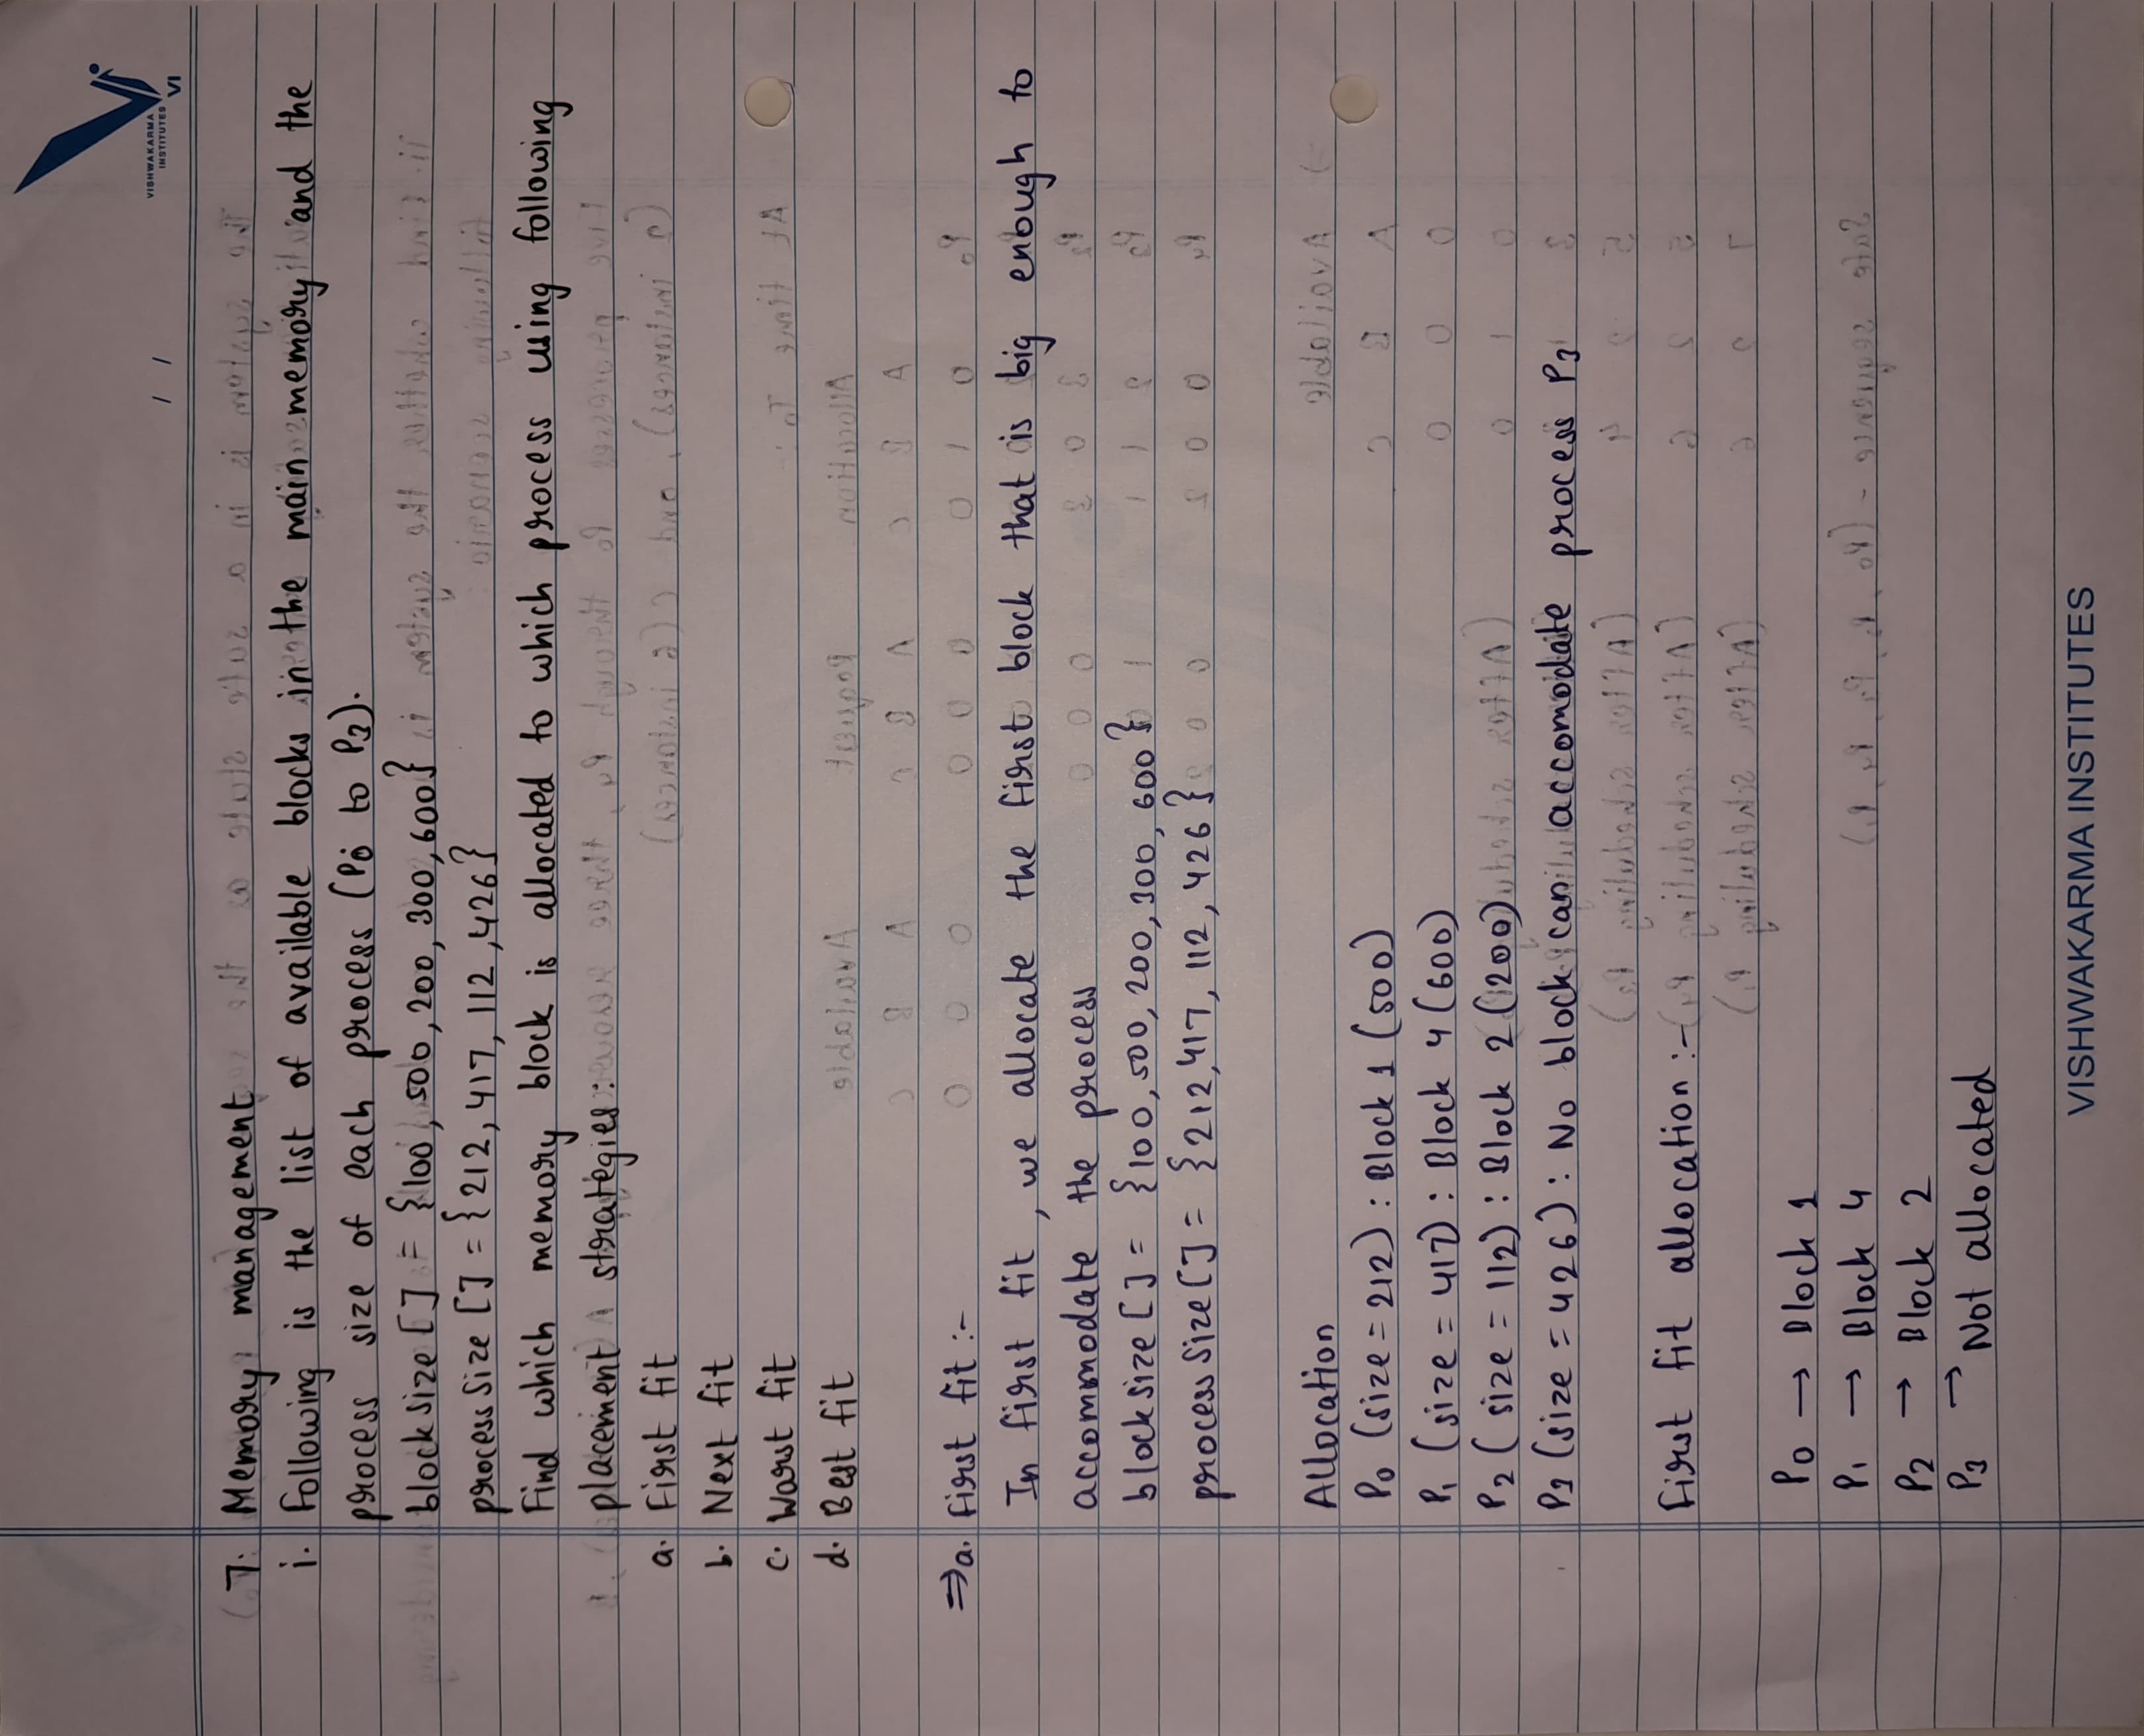 VISHWAKARMA
INSTITUTES
VI
/ /
7. Memory management
i. Following is the list of available blocks in the main memory and the
process size of each process (P0 to P3).
block size [] = {100, 500, 200, 300, 600}
process size [] = {212, 417, 112, 426}
Find which memory block is allocated to which process using following
placement strategies:
a. First fit
b. Next fit
c. Worst fit
d. Best fit
⇒ a. First fit :-
In first fit, we allocate the first block that is big enough to
accommodate the process
block size [] = {100, 500, 200, 300, 600}
process size [] = {212, 417, 112, 426}
Allocation
P0 (size = 212) : Block 1 (500)
P1 (size = 417) : Block 4 (600)
P2 (size = 112) : Block 2 (200)
P3 (size = 426) : No block can accomodate process P3
First fit allocation :-
P0 → Block 1
P1 → Block 4
P2 → Block 2
P3 → Not allocated
VISHWAKARMA INSTITUTES